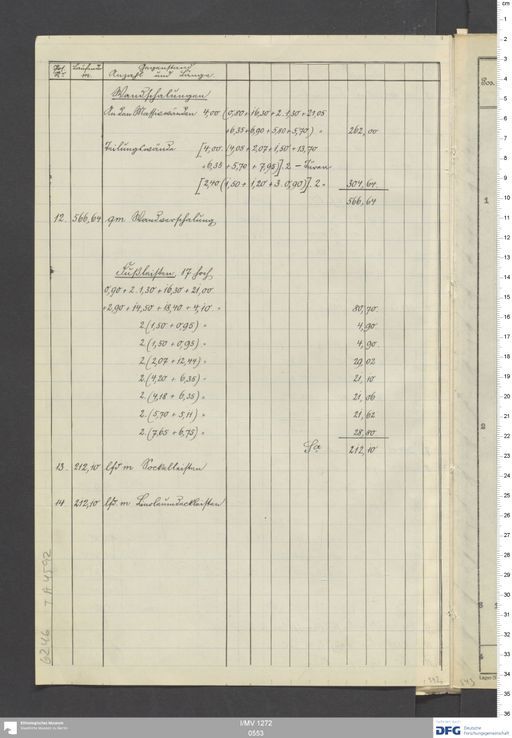 Pos. Nr. Laufende m. Gegenstand Anzahl und Länge
Wandschalungen
An den Massivwänden 4,00 (0,80 + 16,30 + 2 . 1,30 + 21,05
+ 6,35 + 6,90 + 5,80 + 5,70) = 262,00
Teilungswände [4,00 (4,05 + 2,07 + 1,50 + 13,70
+ 6,35 + 5,70 + 7,95)] . 2 – Türen
[2,40 (1,50 + 1,20 + 3 . 0,90)] . 2 = 304,64
566,64
12. 566,64 qm Wandverschalung
Fußleisten, 17 hoch
0,90 + 2 . 1,30 + 16,30 + 21,00
+ 2,90 + 14,50 + 18,40 + 4,10 = 80,70
2 (1,50 + 0,95) = 4,90
2 (1,50 + 0,95) = 4,90
2 (2,07 + 12,44) = 29,02
2 (4,20 + 6,35) = 21,10
2 (4,18 + 6,35) = 21,06
2 (5,70 + 5,11) = 21,62
2 (7,65 + 6,75) = 28,80
Sa 212,10
13. 212,10 lfd m Sockelleisten
14. 212,10 lfd. m Linoleumdeckleisten
6246 I A 4592
542
543
Pos.
1
2
3
4
Ethnologisches Museum
Staatliche Museen zu Berlin
I/MV 1272
0553
DFG Deutsche Forschungsgemeinschaft